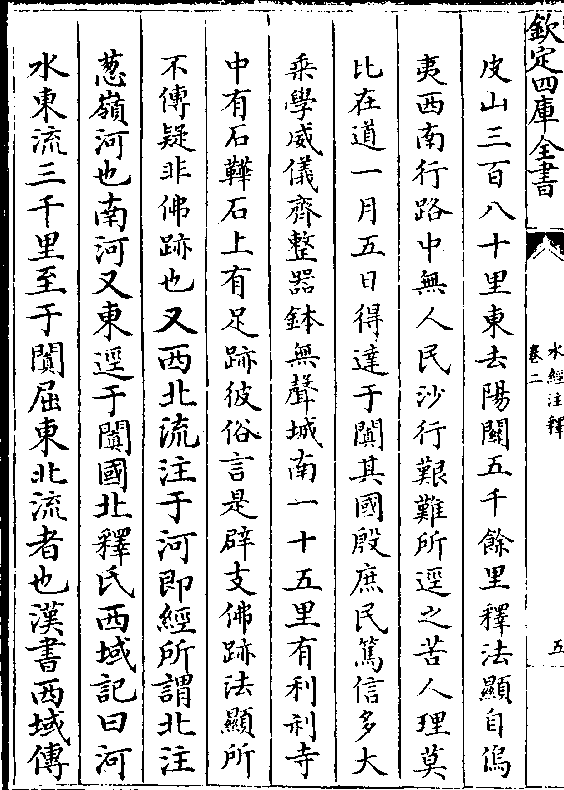 欽定四庫全書
水經注釋
卷二
五
皮山三百八十里東去陽關五千餘里釋法顯自傿
夷西南行路中無人民沙行艱難所逕之苦人理莫
比在道一月五日得達于闐其國殷庶民篤信多大
乘學威儀齊整器鉢無聲城南一十五里有利刹寺
中有石鞾石上有足跡彼俗言是辟支佛跡法顯所
不傳疑非佛跡也又西北流注于河即經所謂北注
葱嶺河也南河又東逕于闐國北釋氏西域記曰河
水東流三千里至于闐屈東北流者也漢書西域傳